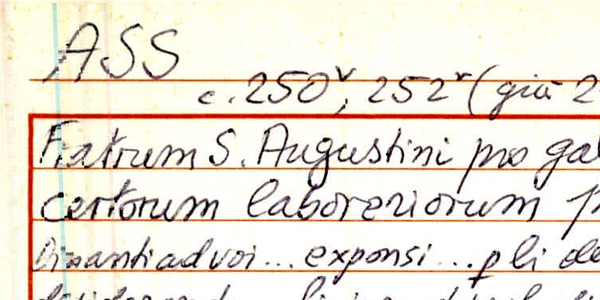 ASS
c. 250v, 252r (già 2
Fratrum S. Augustini pro
certorum laboreriorum
Dinanti ad voi... exponsi... p li